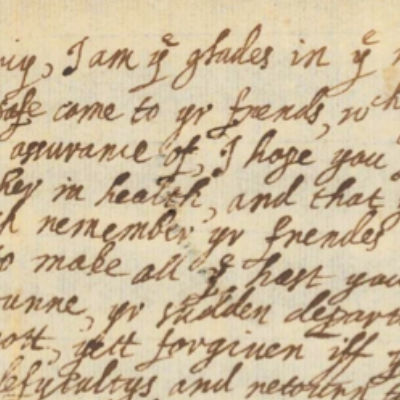 I am yͤ glades in yͤ
safe come to yr frends, wch
assurance of, I hope you
they in health, and that
remember yr frendes
to make all yͤ hast you
yr sudden depart
yett forgiven iff
and retourn